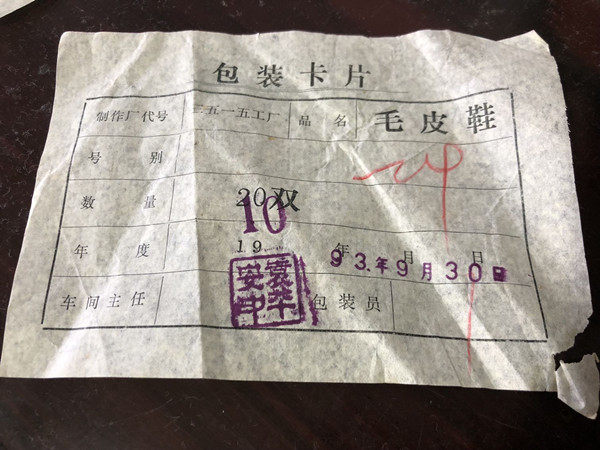 包装卡片
制作厂代号 三五一五工厂 品名 毛皮鞋
号别
数量 20双
10
年度 19 年 月 日
93年9月30日
车间主任 包装员